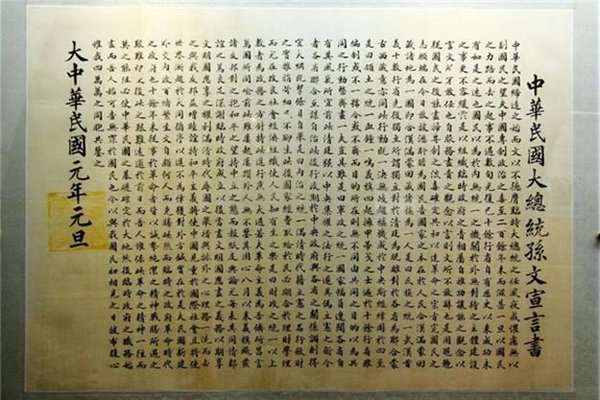 中華民國大總統孫文宣言書
中華民國締造之始而文以不德膺臨時大總統之任夙夜戒懼慮無以
副國民之望夫中國專制政治之毒至二百餘年來而滋甚一旦以國民
之力踣而去之起事不過數旬光復已十餘行省自有歷史以來成功未
有如是之速也國民以為於內無統一之機關於外無對待之主體建設
之事更不容緩於是以組織臨時政府之責相屬自推功讓能之觀念以
言則文所不敢任也自服務盡責之觀念以言則文所不敢辭也是用黽勉
從國民之後能盡掃專制之流毒確定共和以達革命之宗旨完國民之
志願端在今日敢披瀝肝膽為國民告國家之本在於人民合漢滿蒙回
藏諸地為一國即合漢滿蒙回藏諸族為一人是曰民族之統一武漢首
義十數行省先後獨立所謂獨立對於清廷為脫離對於各省為聯合蒙
古西藏意亦同此行動既一決無歧趨樞機成於中央斯經緯周於四至
是曰領土之統一血鐘一鳴義旗四起擁甲帶戈之士遍於十餘行省雖
編制或不一號令或不齊而目的所在則無不同由共同之目的以為共
同之行動整齊畫一夫豈其難是曰軍政之統一國家幅員遼闊各省自
有其風氣所宜前此清廷強以中央集權之法行之遂其偽立憲之術今
者各省聯合互謀自治此後行政期於中央政府與各省之關係調劑得
宜大綱既挈條目自舉是曰內治之統一滿清時代藉立憲之名行斂財
之實雜捐苛細民不聊生此後國家經費取給於民必期合於理財學理
而尤在改良社會經濟組織使人民知有生之樂是曰財政之統一以上
數者為政務之方針持此進行庶無大過若夫革命主義為吾儕所昌言
萬國所同喻前此雖屢起屢躓外人無不鑒其用心八月以來義旗飆發
諸友邦對之抱和平之望持中立之態而報紙及輿論尤每表其同情鄰
誼之篤良足深謝臨時政府成立以後當盡文明國應盡之義務以期享
文明國應享之權利滿清時代辱國之舉措與排外之心理務一洗而去
之與我友邦益增睦誼持和平主義將使中國見重於國際社會且將使
世界漸趨於大同循序以進不為倖獲對外方針實在於是夫民國新建
外交內政百緒繁生文自顧何人而克勝此然而臨時之政府革命時代
之政府也十餘年來從事於革命者皆以誠摯純潔之精神戰勝所遇之
艱難即使後此之艱難遠逾於前日而吾人惟保此革命之精神一往而
莫之能阻必使中華民國之基礎確定於大地然後臨時政府之職務始
盡而吾人始可告無罪於國民也今以與我國民初相見之日披布腹心
惟我四萬萬之同胞共鑒之
大中華民國元年元旦